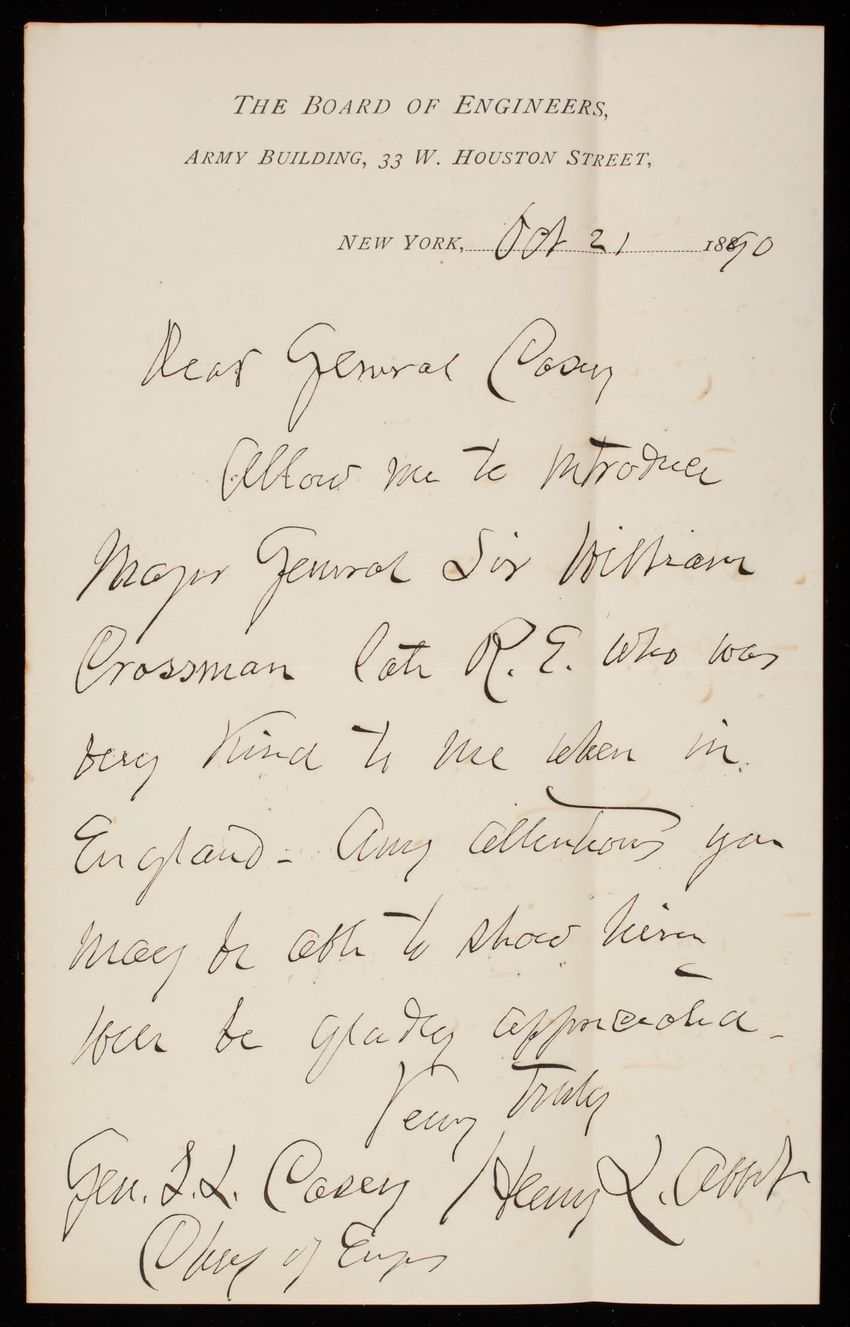 THE BOARD OF ENGINEERS,
ARMY BUILDING, 33 W. HOUSTON STREET,
NEW YORK, Oct 21 1890
Dear General Casey
Allow me to introduce
Major General Sir William
Crossman late R. E. who was
very kind to me when in
England - Any attentions you
may be able to show him
will be gladly appreciated -
Very Truly
Henry L. Abbot
Gen. T. L. Casey
Chief of Engrs